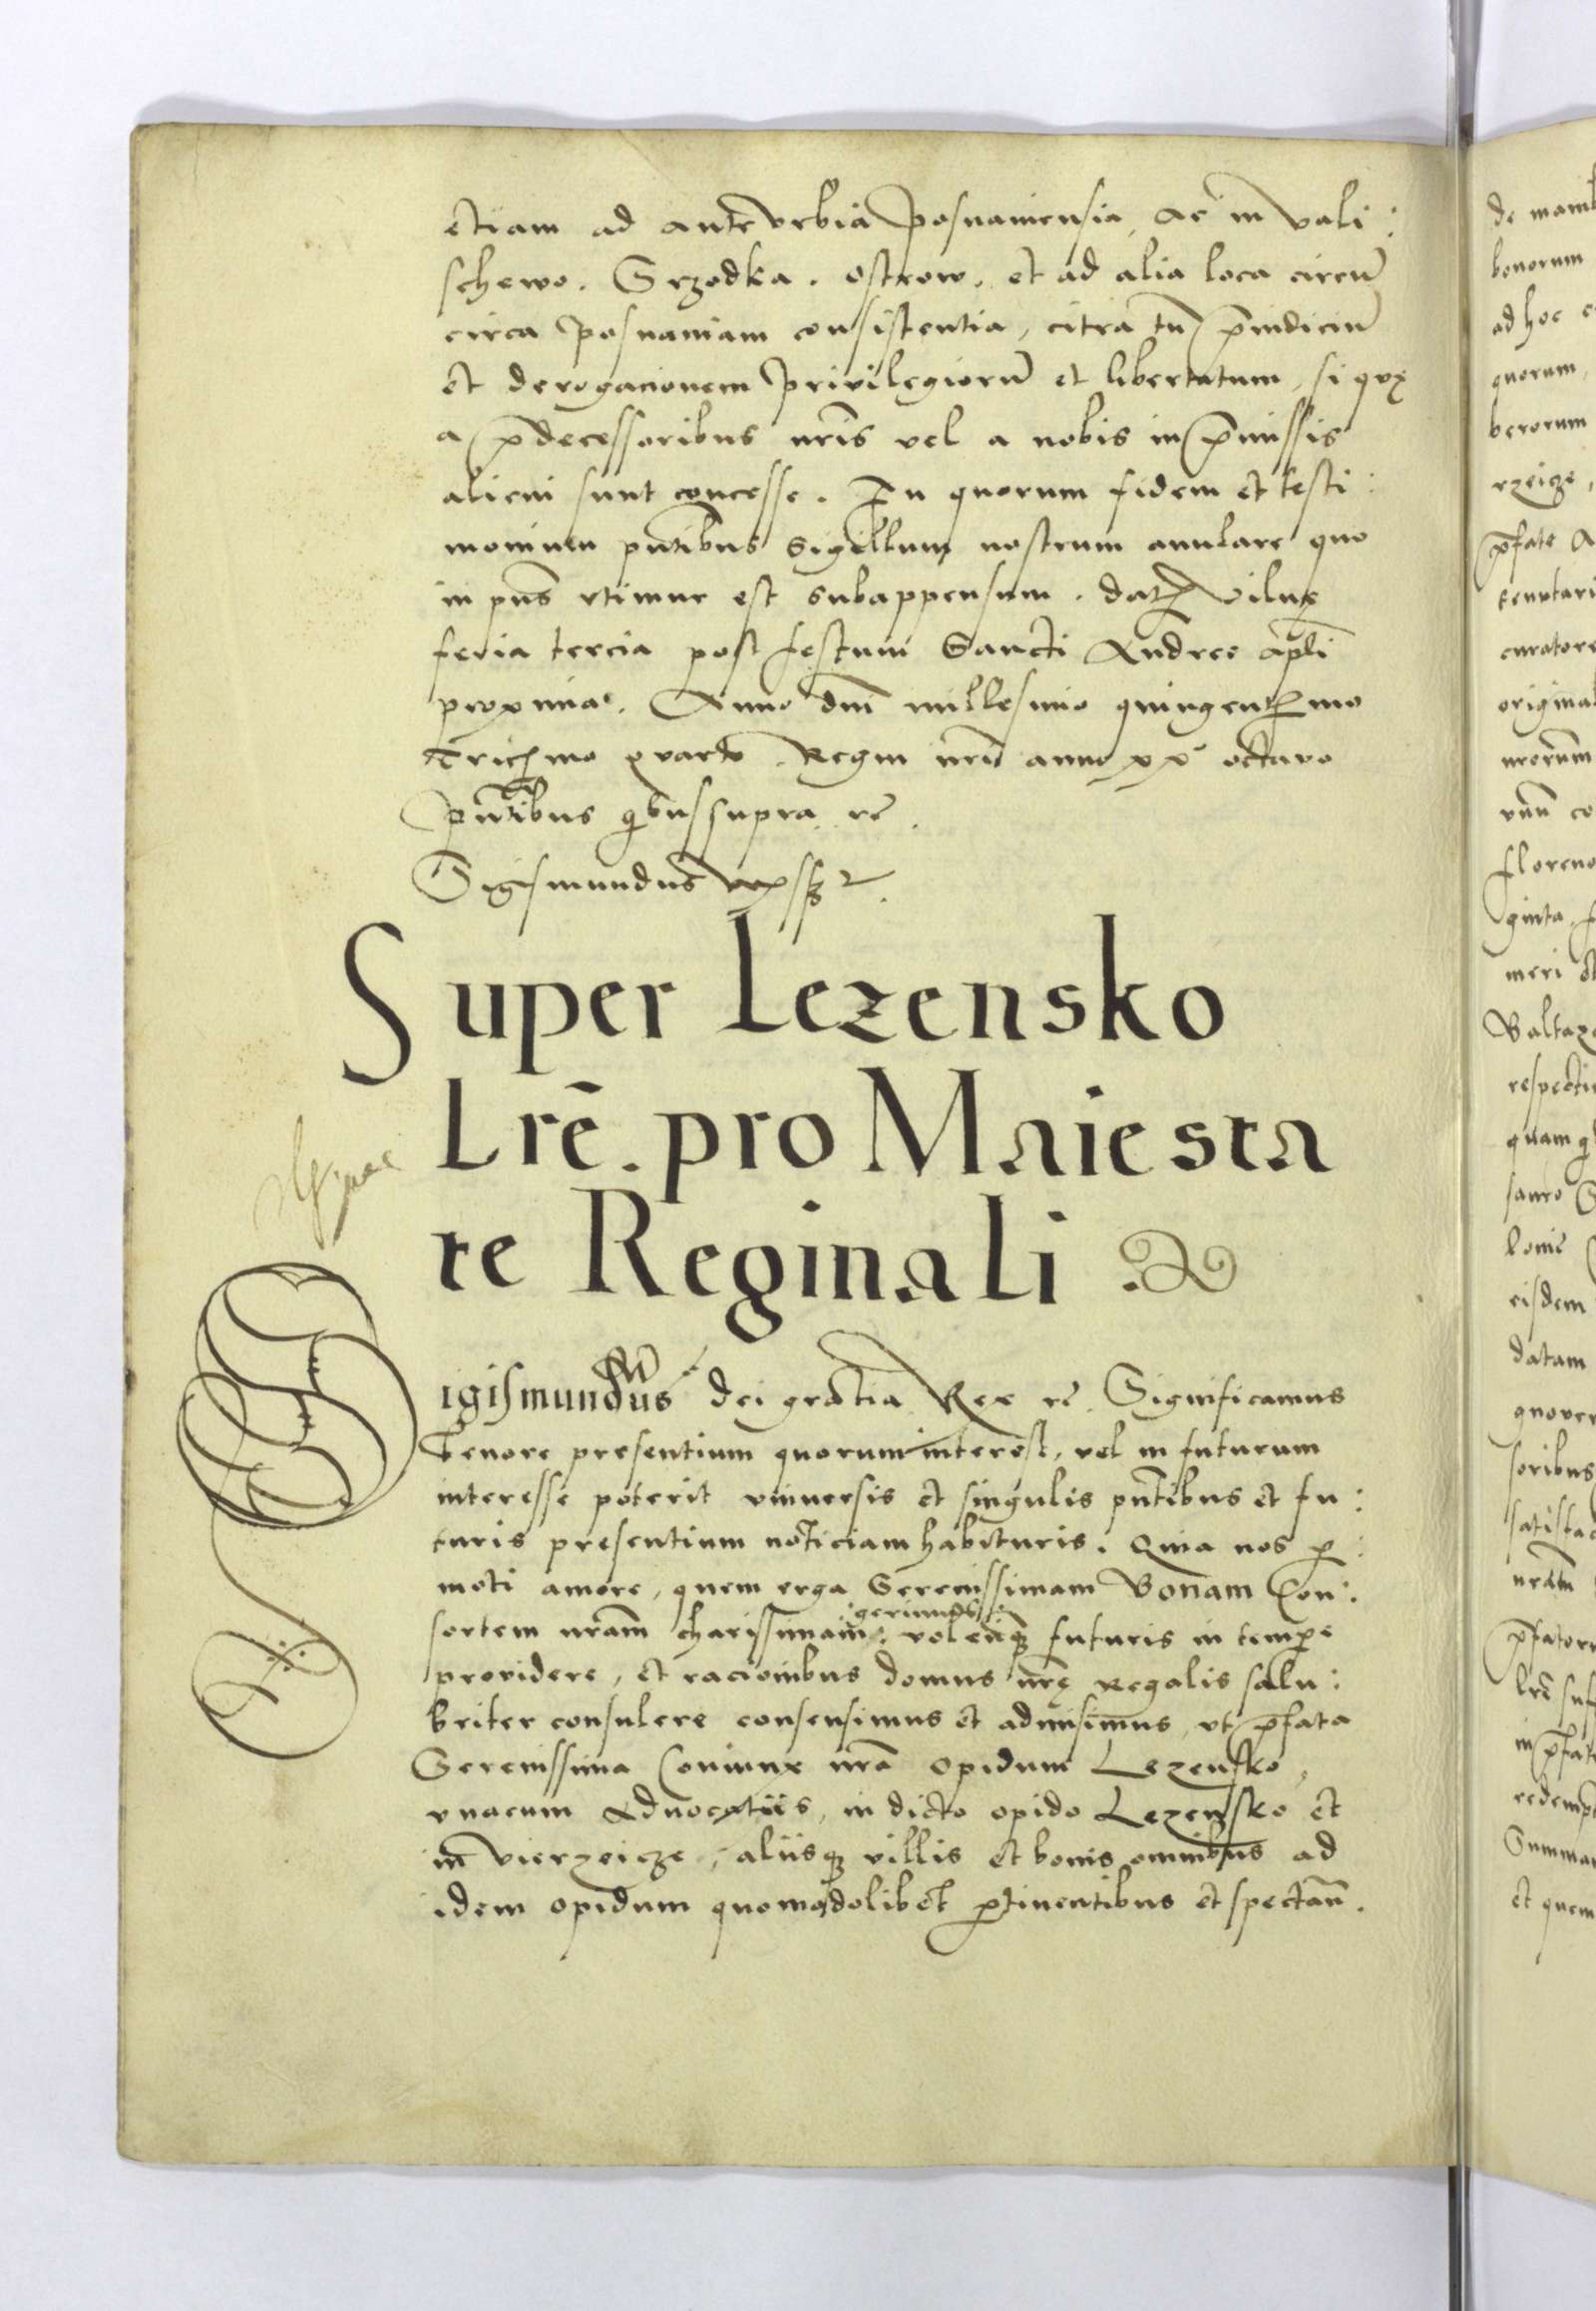 etiam ad ante vrbia Posnaniensia, ac in Vali:
schewo. Srzodka. Ostrow. et ad alia loca circū
circa Posnaniam consistentia, citra tn̄ p̄iudiciū
et derogacionem Privilegiorū et libertatum, si quę
a p̄decessoribus nr̄is vel a nobis in p̄missis
alicui sunt concesse. In quorum fidem et testi:
monium pn̄tibus Sigillum nostrum anulare quo
in pn̄s vtimur est subappensum. dat Vilnę
feria tercia post festum Sancti Andree apl̄i
proxima. Anno dn̄i millesimo quingentmo
Tricmo quarto. Regni nr̄i anno xx octavo
Pn̄tibus qibus supra rē.
Sigismundus Rex sst
Super Lezensko
Lrē. pro Maiesta
te Reginali
Sigismundus dei gratia Rex rē. Significamus
Tenore presentium quorum interest, vel in futurum
interesse poterit vniuersis et singulis pn̄tibus et fu:
turis presentium noticiam habituris. Quia nos p
moti amore, quem erga Serenissimam Bonam Con:
gerimus
sortem nr̄am charissimam: volentesq futuris in tempe
providere, et racionibus domus nr̄ę Regalis salu:
briter consulere consensimus et admisimus, vt p̄fata
Serenissima Coniunx nr̄a opidum Lezensko,
vnacum Advocatiis, in dicto opido Lezensko et
in Vierzeicze, aliisq villis et bonis omnibus ad
idem opidum quomodolibet ptinentibus et spectan̄.
de
bonorum
ad hoc
quorum,
berorum
rzeicze,
p̄fate
curatore
original
nrorum
vnū co
floreno
ginta.
meri
Baltaza
respecti
quam
eisdem
datam
quover
soribus
satisfac
nram
p̄fator
lrē suf
redemp
Summa
et quem